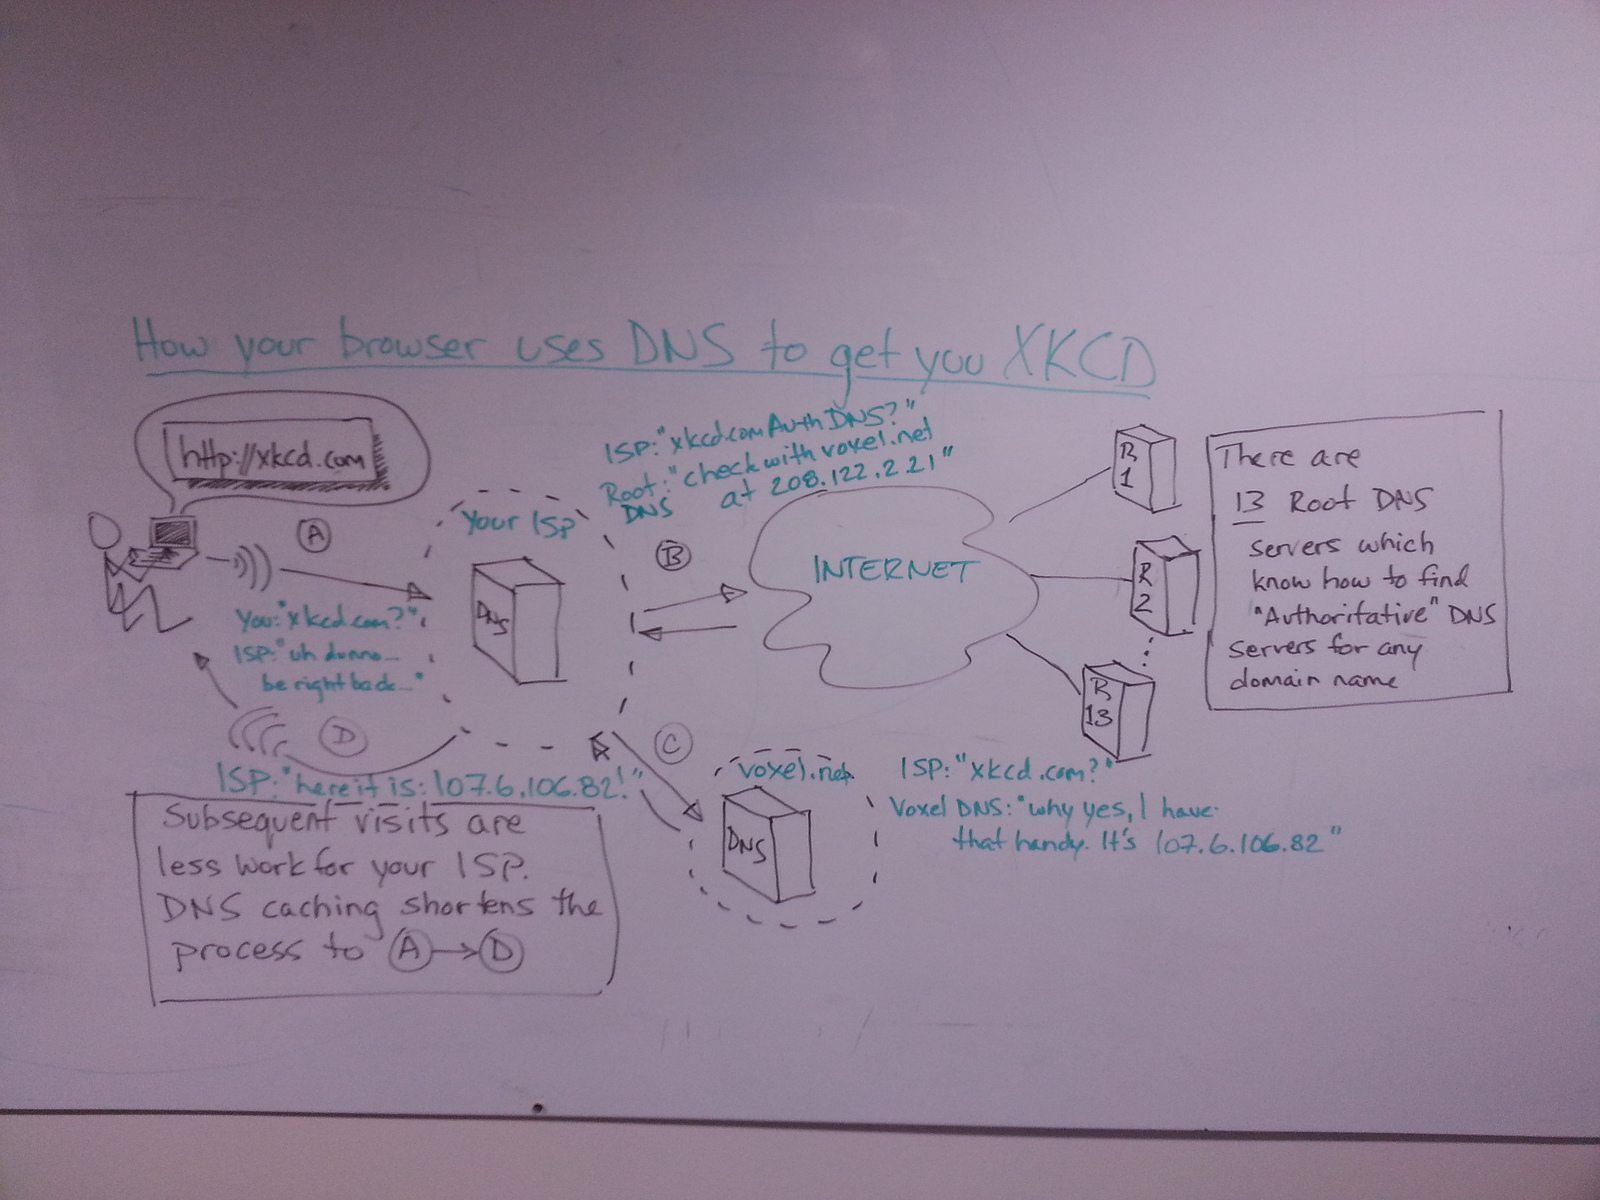 How your browser uses DNS to get you XKCD
http://xkcd.com
A
You: "xkcd.com?"
ISP: "uh dunno...
be right back..."
Your ISP
DNS
ISP: "xkcd.com Auth DNS?"
Root DNS: "check with voxel.net
at 208.122.2.21"
B
INTERNET
R
1
R
2
R
13
There are
13 Root DNS
servers which
know how to find
"Authoritative" DNS
servers for any
domain name
C
voxel.net
DNS
ISP: "xkcd.com?"
Voxel DNS: "why yes, I have
that handy. It's 107.6.106.82"
D
ISP: "here it is: 107.6.106.82!"
Subsequent visits are
less work for your ISP.
DNS caching shortens the
process to A → D